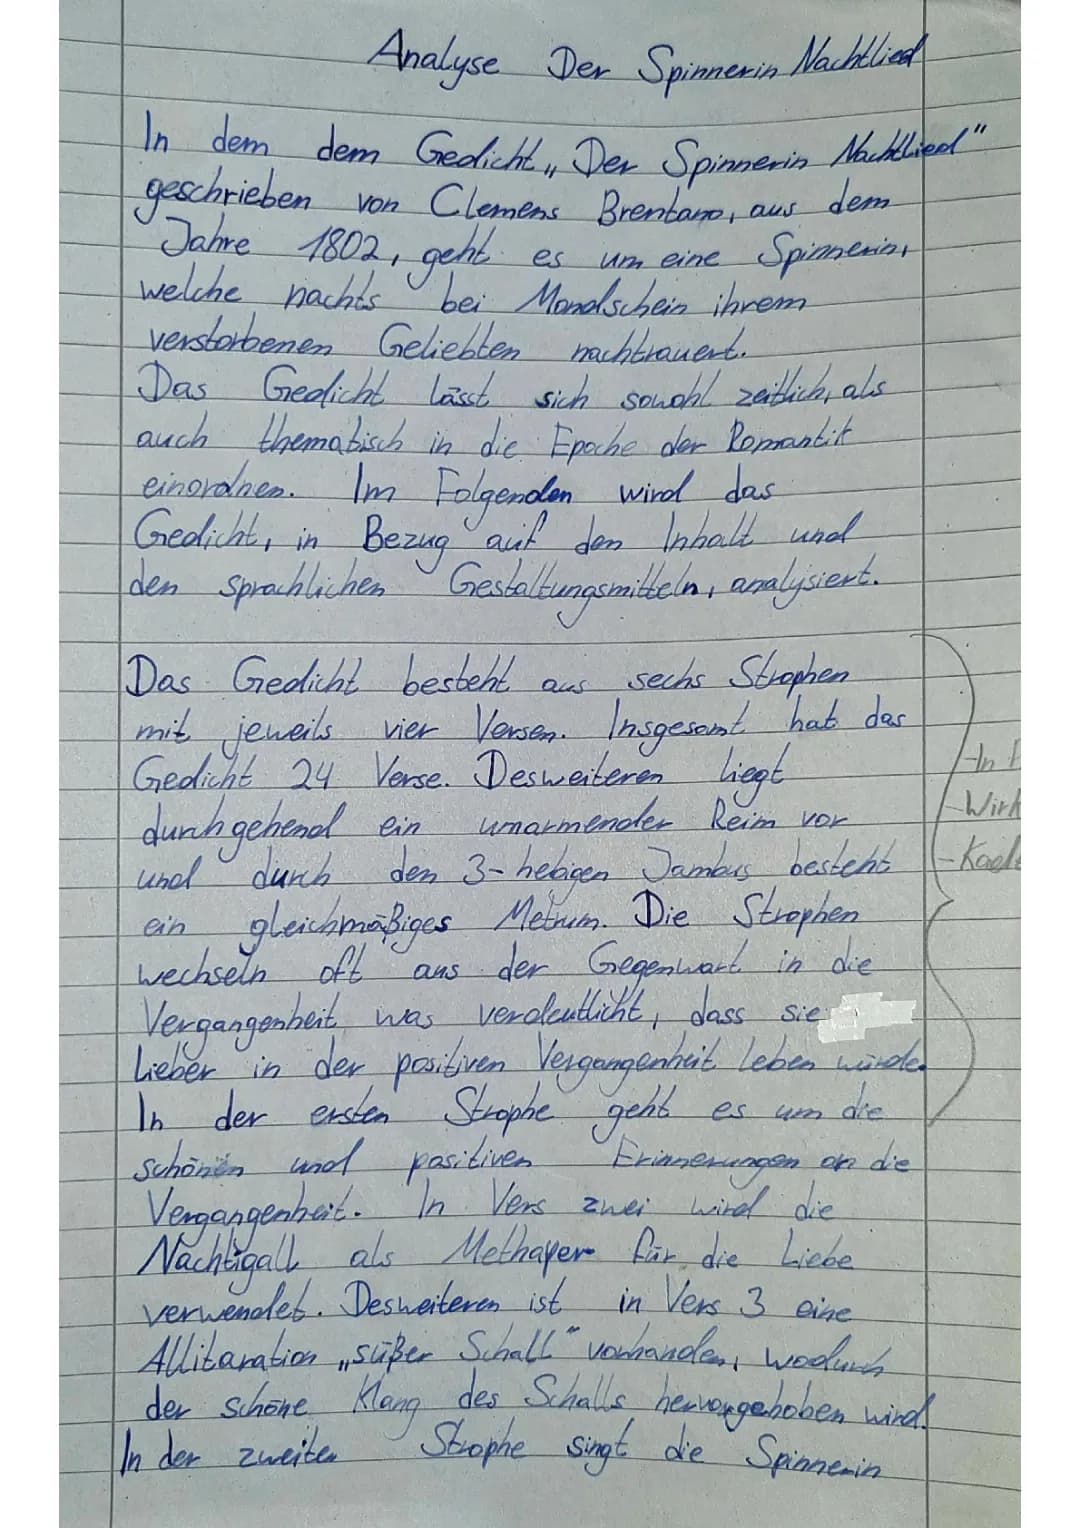 Analyse Der Spinnerin Nachtlied
In dem dem Gedicht „Der Spinnerin Nachtlied"
geschrieben von Clemens Brentano, aus dem
Jahre 1802, geht es um eine Spinnerin,
welche nachts bei Mondschein ihrem
verstorbenen Geliebten nachtrauert.
Das Gedicht lässt sich sowohl zeitlich, als
auch thematisch in die Epoche der Romantik
einordnen. Im Folgenden wird das
Gedicht, in Bezug auf den Inhalt und
den sprachlichen Gestaltungsmitteln, analysiert.
Das Gedicht besteht aus sechs Strophen
mit jeweils vier Versen. Insgesamt hat das
Gedicht 24 Verse. Desweiteren liegt
-In
durchgehend ein umarmender Reim vor
-Wirk
und durch den 3-hebigen Jambus besteht
-Kade
ein gleichmäßiges Metrum. Die Strophen
wechseln oft aus der Gegenwart in die
Vergangenheit was verdeutlicht, dass sie
lieber in der positiven Vergangenheit leben würde.
In der ersten Strophe geht es um die
schönen und positiven Erinnerungen an die
Vergangenheit. In Vers zwei wird die
Nachtigall als Methaper für die Liebe
verwendet. Desweiteren ist in Vers 3 eine
Allitaration „süßer Schall" vorhanden, wodurch
der schöne Klang des Schalls hervorgehoben wird.
In der zweiten Strophe singt die Spinnerin